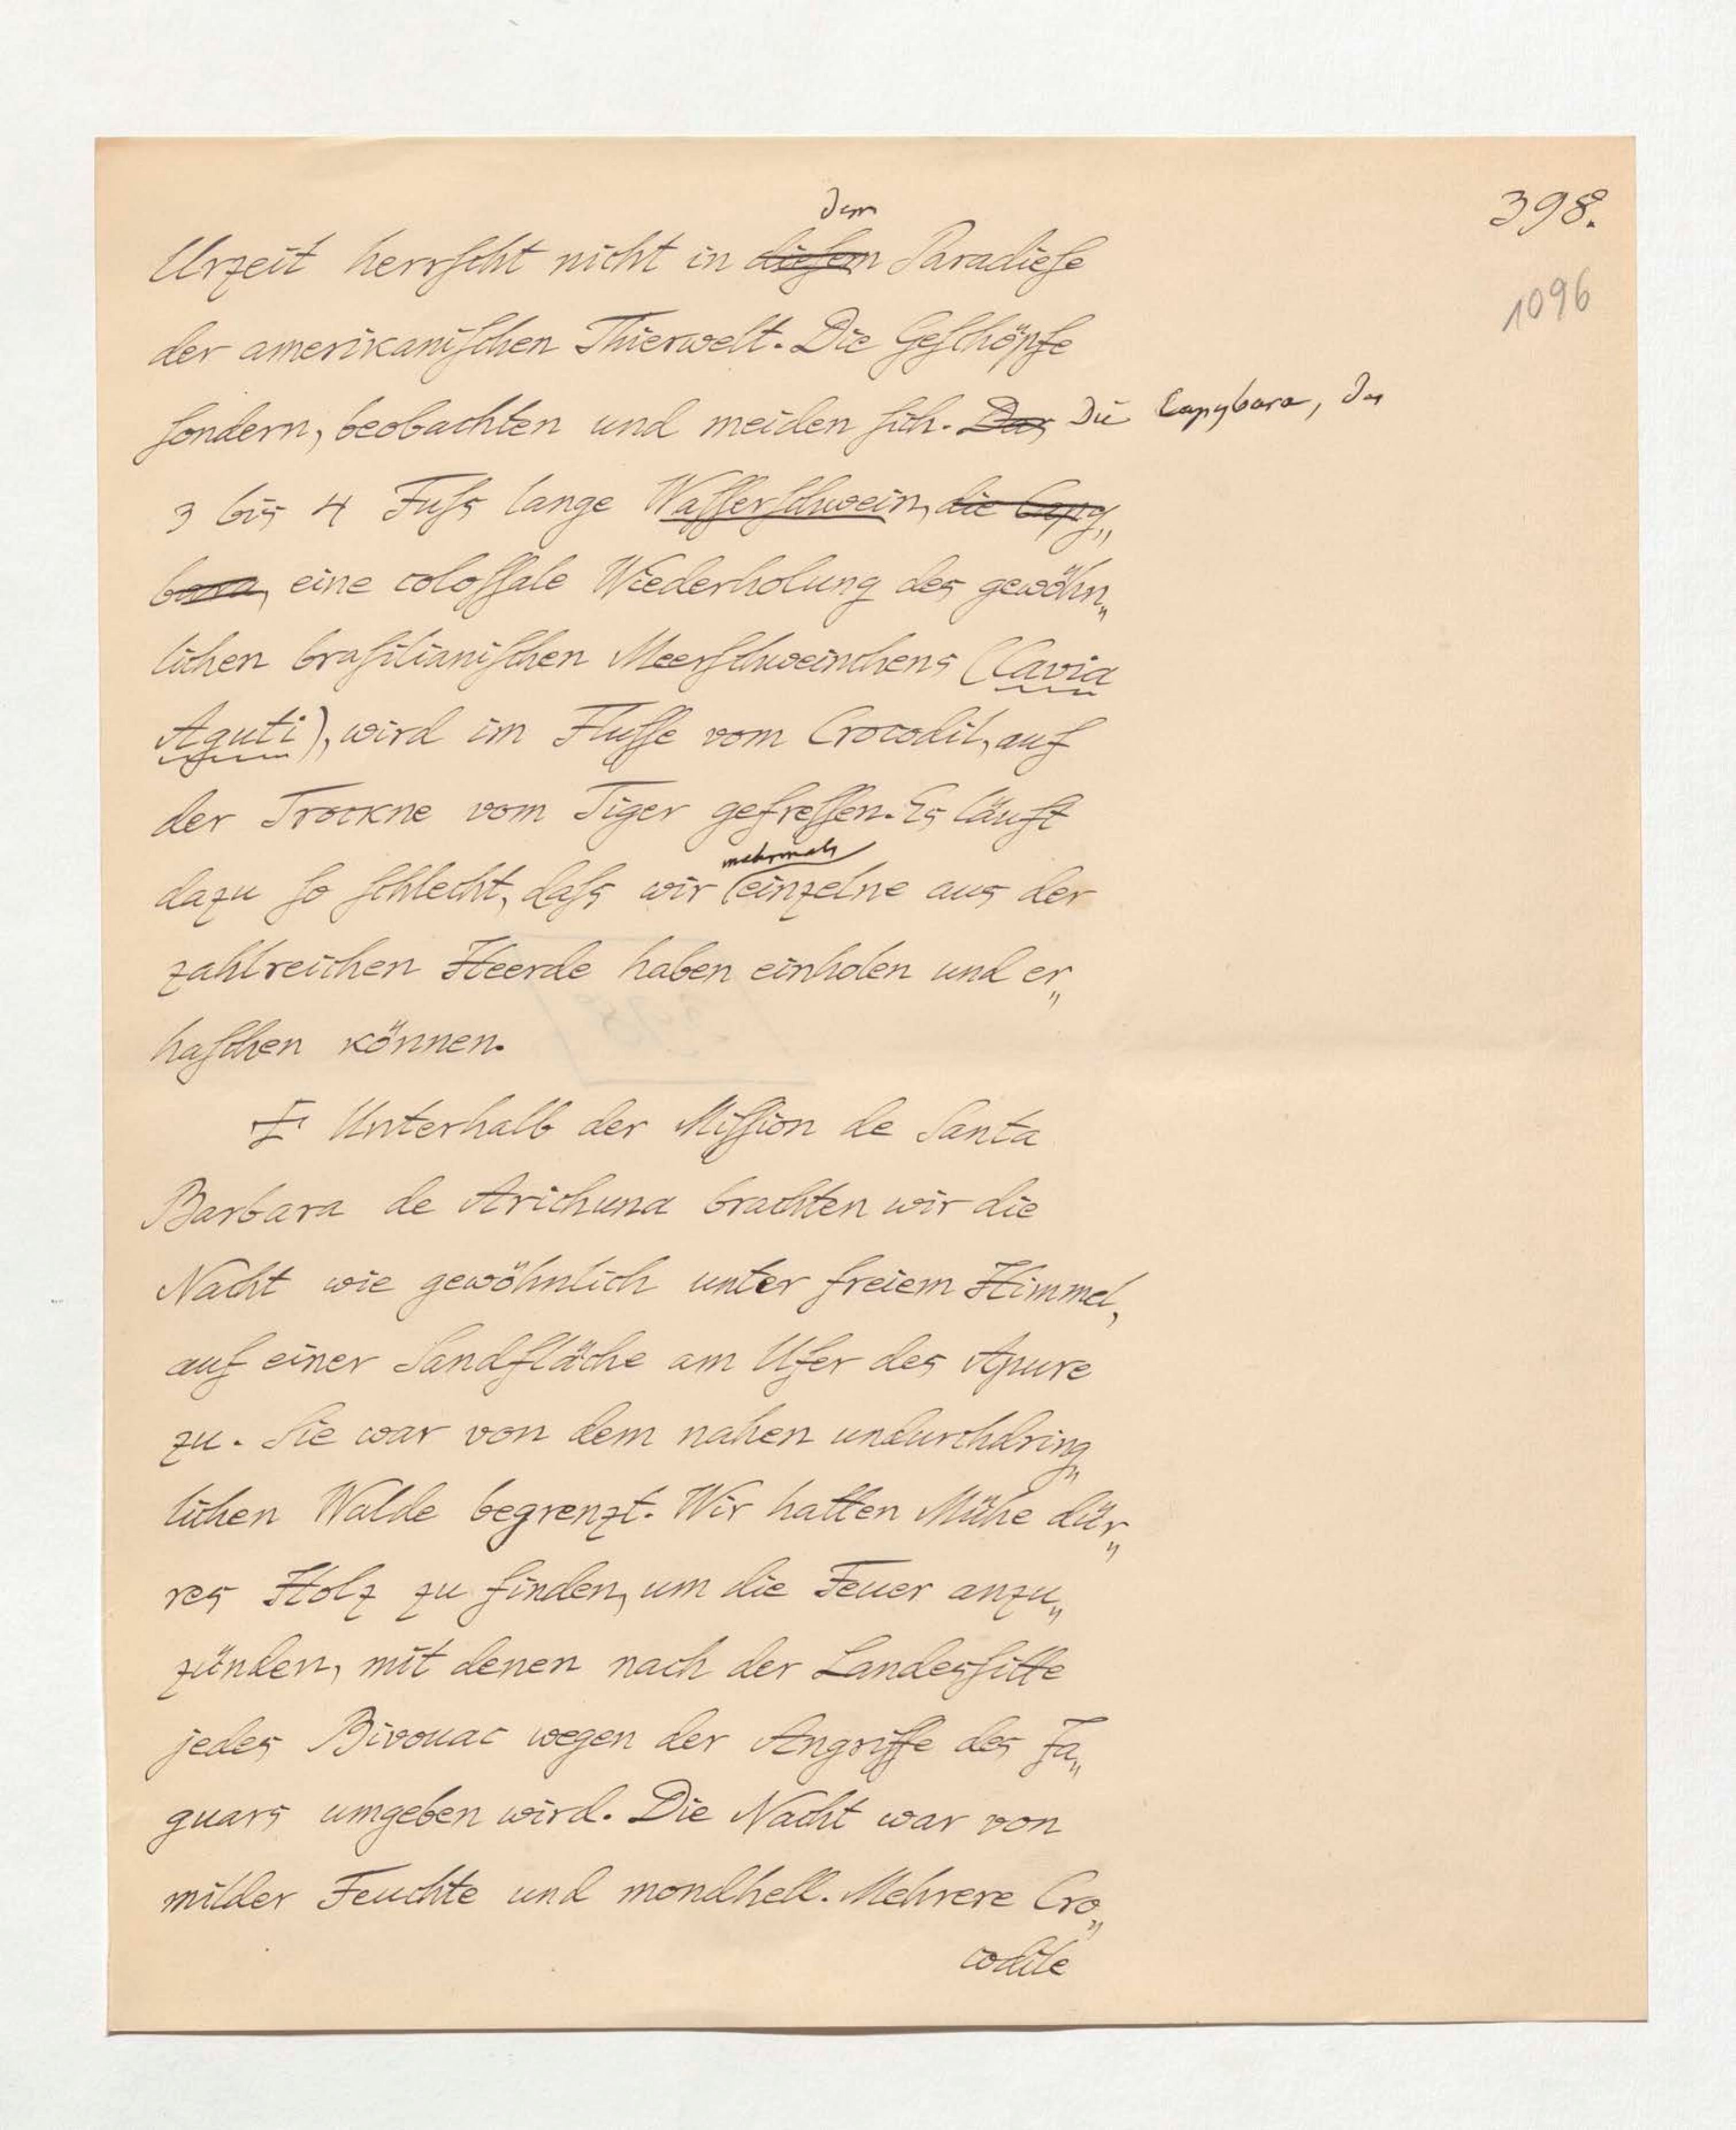 398.
1096
dem
Urzeit herrſcht nicht in dieſem Paradieſe
der amerikaniſchen Thierwelt. Die Geſchöpfe
ſondern, beobachten und meiden ſich. Das Die Capybara, das
3 bis 4 Fuſs lange Waſſerſchwein, die Capy„
bara, eine coloſſale Wiederholung des gewöhn„
lichen braſilianiſchen Meerſchweinchens (Cavia
Aguti), wird im Fluſſe vom Crocodil, auf
der Trockne vom Tiger gefreſſen. Es läuft
mehrmals
dazu ſo ſchlecht, daſs wir einzelne aus der
zahlreichen Heerde haben einholen und er„
haſchen können.
Unterhalb der Miſſion de Santa
Barbara de Arichuna brachten wir die
Nacht wie gewöhnlich unter freiem Himmel,
auf einer Sandfläche am Ufer des Apure
zu. Sie war von dem nahen undurchdring„
lichen Walde begrenzt. Wir hatten Mühe dür„
res Holz zu finden, um die Feuer anzu„
zünden, mit denen nach der Landesſitte
jedes Bivouac wegen der Angriffe des Ja„
guars umgeben wird. Die Nacht war von
milder Feuchte und mondhell. Mehrere Cro„
codile